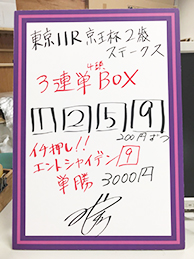 東京11R 京王杯2歳
ステークス
4頭
3連単BOX
1 2 5 9
200円ずつ
イチ押し!!
エントシャイデン 9
単勝 3000円